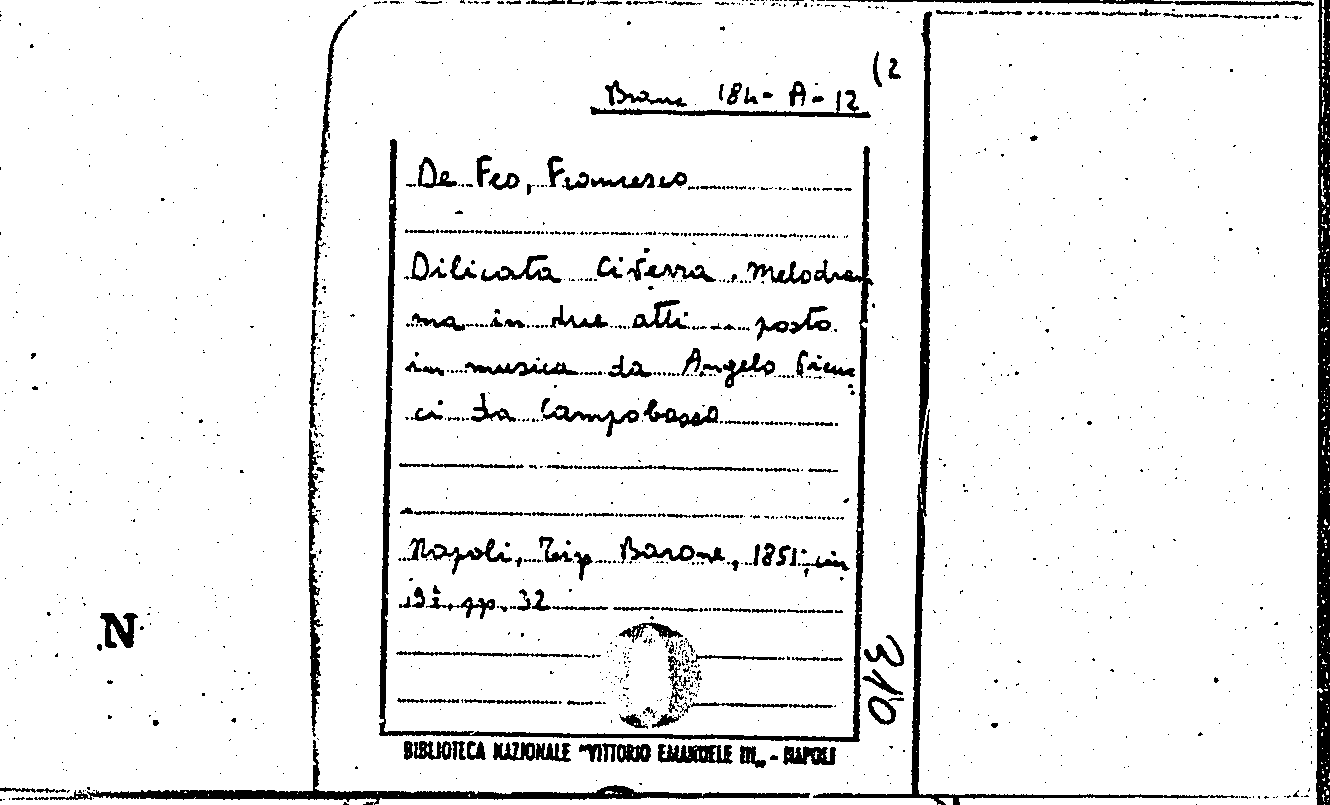 (2
Branc 184-A-12
De Feo, Francesco
Dilicata Civerra. Melodram
ma in due atti ... posto
in musica da Angelo
ci da Campobasso
Napoli, Tip Barone, 1851; in
pp. 32
310
N
BIBLIOTECA NAZIONALE "VITTORIO EMANUELE III„ - NAPOLI